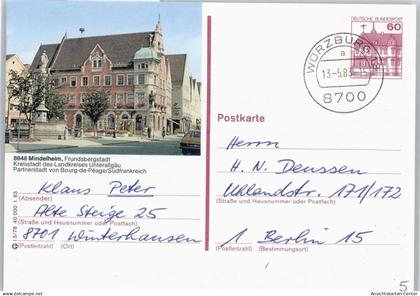 8948 Mindelheim, Frundsbergstadt
Kreisstadt des Landkreises Unterallgäu
Partnerstadt von Bourg-de-Péage/Südfrankreich
Klaus Peter
(Absender)
Alte Steige 25
(Straße und Hausnummer oder Postfach)
8701 Winterhausen
(Postleitzahl) (Ort)
DEUTSCHE BUNDESPOST
60
WÜRZBURG
a
13.-5.83
8700
Postkarte
Herrn
H. N. Deussen
Uhlandstr. 171/172
(Straße und Hausnummer oder Postfach)
1 Berlin 15
(Postleitzahl) (Bestimmungsort)
5
Ansichtskarten-Center